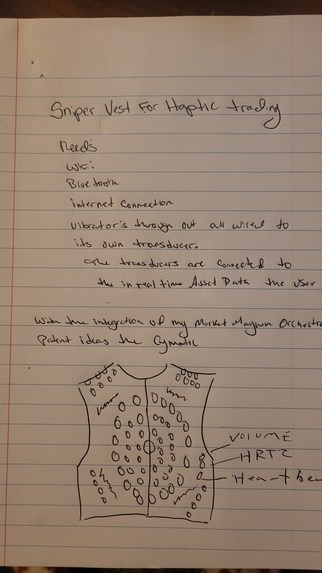 Sniper Vest For Haptic trading
Needs
Wifi
Bluetooth
internet Connection
Vibrator's through out all wired to
its own transducer.
the transducers are connected to
the in real time Asset Data the user
With the integration of my Market
Patent ideas the Cymatic
VOLUME
HRTZ